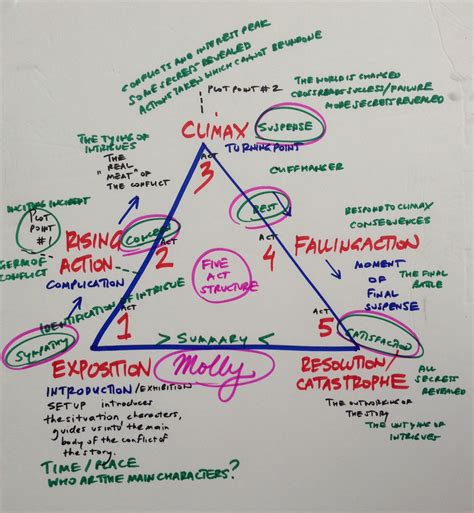 CONFLICTS AND INTEREST PEAK
SOME SECRETS REVEALED
ACTIONS TAKEN WHICH CANNOT BE UNDONE
PLOT POINT #2
THE WORLD IS CHANGED
CROSSROADS SUCCESS/FAILURE
MORE SECRETS REVEALED
CLIMAX
SUSPENSE
TURNING POINT
THE TYING OF
INTRIGUES
THE
"REAL
MEAT" OF
THE CONFLICT
ACT
3
CLIFFHANGER
INCITING INCIDENT
PLOT
POINT
#1
CONCERN
REST
RESPOND TO CLIMAX
CONSEQUENCES
RISING
ACTION
ACT
2
ACT
4
FALLING ACTION
GERM OF
CONFLICT
COMPLICATION
FIVE
ACT
STRUCTURE
MOMENT
OF
FINAL
SUSPENSE
THE FINAL
BATTLE
IDENTIFICATION OF INTRIGUE
ACT
1
ACT
5
SYMPATHY
> SUMMARY >
SATISFACTION
EXPOSITION
Molly
RESOLUTION/
CATASTROPHE
ALL
SECRETS
REVEALED
INTRODUCTION/EXHIBITION
SET UP introduces
the situation, characters,
guides us into the main
body of the conflict of
the story.
THE OUTWORKING OF
THE STORY
THE UNTYING OF
INTRIGUES
TIME / PLACE
WHO ARE THE MAIN CHARACTERS?